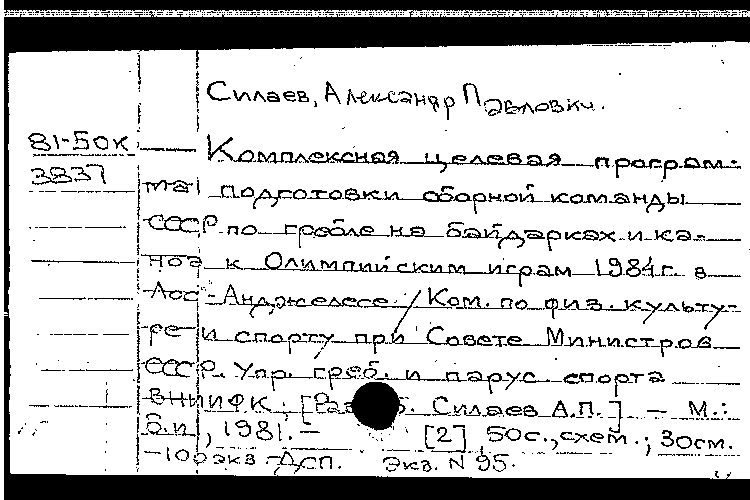 Силаев, Александр Павлович.
81-50к
3837
Комплексная целевая програм-
ма подготовки сборной команды
СССР по гребле на байдарках и ка-
ноэ к Олимпийским играм 1984г. в
Лос-Анджелесе / Ком. по физ. культу-
ре и спорту при Совете Министров
СССР. Упр. греб. и парус. спорта
ВНИИФК; [Силаев А.П.]. – М.:
б.и., 1981. – [2], 50с., схем.; 30см.
–100 экз. Дсп. Экз. N 95.